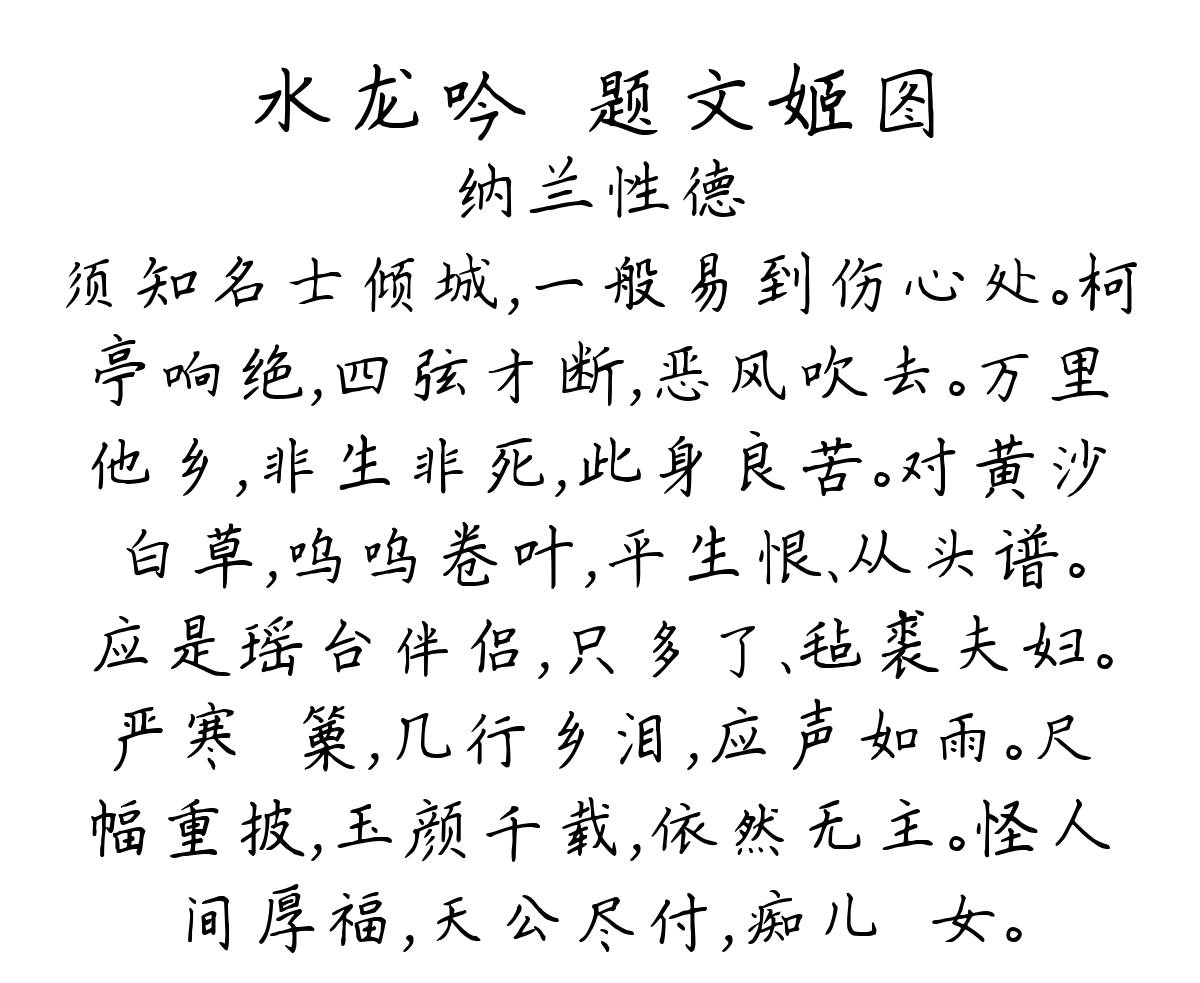 水龙吟 题文姬图
纳兰性德
须知名士倾城,一般易到伤心处。柯
亭响绝,四弦才断,恶风吹去。万里
他乡,非生非死,此身良苦。对黄沙
白草,呜呜卷叶,平生恨、从头谱。
应是瑶台伴侣,只多了、毡裘夫妇。
严寒 篥,几行乡泪,应声如雨。尺
幅重披,玉颜千载,依然无主。怪人
间厚福,天公尽付,痴儿 女。